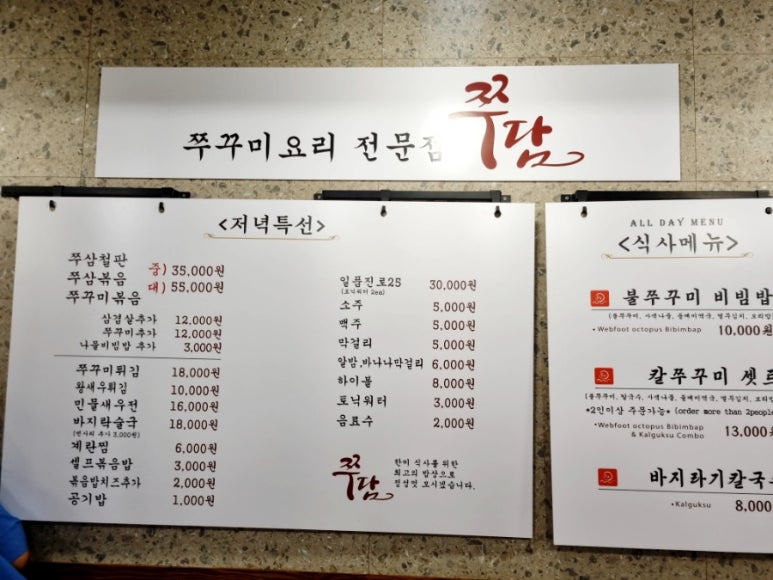 쭈꾸미요리 전문점 쭈담
<저녁특선>
쭈삼철판
쭈삼볶음
쭈꾸미볶음
중) 35,000원
대) 55,000원
삼겹살추가 12,000원
쭈꾸미추가 12,000원
나물비빔밥 추가 3,000원
쭈꾸미튀김 18,000원
왕새우튀김 10,000원
민물새우전 16,000원
바지락술국 18,000원
(면사리 추가 3,000원)
계란찜 6,000원
셀프볶음밥 3,000원
볶음밥치즈추가 2,000원
공기밥 1,000원
일품진로25 30,000원
(토닉워터 2ea)
소주 5,000원
맥주 5,000원
막걸리 5,000원
알밤,바나나막걸리 6,000원
하이볼 8,000원
토닉워터 3,000원
음료수 2,000원
쭈담
한끼 식사를 위한
최고의 밥상으로
정성껏 모시겠습니다.
ALL DAY MENU
<식사메뉴>
불쭈꾸미 비빔밥
(불쭈꾸미, 사색나물, 들깨미역국, 열무김치, 보리밥
•Webfoot octopus Bibimbap 10,000원
칼쭈꾸미 셋트
(불쭈꾸미, 칼국수, 사색나물, 들깨미역국, 열무김치, 보리밥
*2인이상 주문가능* (order more than 2people
•Webfoot octopus Bibimbap
& Kalguksu Combo 13,000원
바지라기칼국
•Kalguksu 8,000